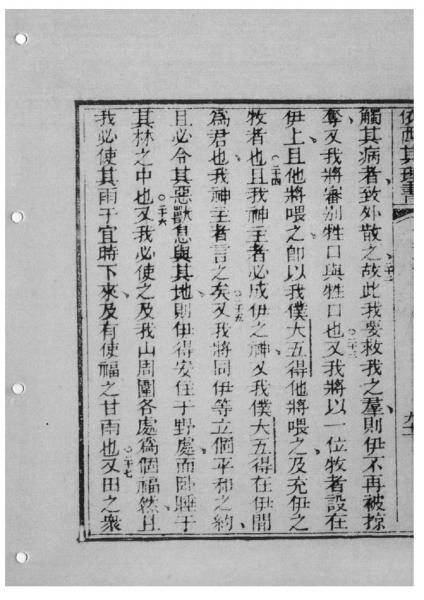 依西其理書
觸其病者致外散之故○二二此我要救我之羣則伊不再被掠
奪又我將審別牲口與牲口也○二三又我將以一位牧者設在
伊上且他將喂之卽以我僕大五得他將喂之及充伊之
牧者也○二四且我神主者必成伊之神又我僕大五得在伊間
爲君也我神主者言之矣○二五又我將同伊等立個平和之約
且必令其惡獸息與其地則伊得安住于野處而卧睡于
其林之中也○二六又我必使之及我山周圍各處爲個福然且
我必使其雨于宜時下來及有使福之甘雨也○二七又田之衆